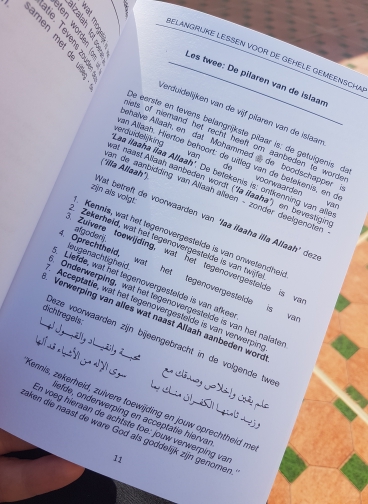 BELANGRIJKE LESSEN VOOR DE GEHELE GEMEENSCHAP
Les twee: De pilaren van de islaam
Verduidelijken van de vijf pilaren van de islaam.
De eerste en tevens belangrijkste pilaar is: de getuigenis dat
niets of niemand het recht heeft om aanbeden te worden
behalve Allaah, en dat Mohammed ﷺ de boodschapper is
van Allaah. Hiertoe behoort: de uitleg van de betekenis, en de
verduidelijking van de voorwaarden van
'Laa ilaaha ilaa Allaah' De betekenis is: ontkenning van alles
wat naast Allaah aanbeden wordt ('la ilaaha') en bevestiging
van de aanbidding van Allaah alleen - zonder deelgenoten -
('illa Allaah').
Wat betreft de voorwaarden van 'laa ilaaha illa Allaah' deze
zijn als volgt:
1. Kennis, wat het tegenovergestelde is van onwetendheid.
2. Zekerheid, wat het tegenovergestelde is van twijfel.
3. Zuivere toewijding, wat het tegenovergestelde is van
afgoderij.
4. Oprechtheid, wat het tegenovergestelde is van
leugenachtigheid.
5. Liefde, wat het tegenovergestelde is van afkeer.
6. Onderwerping, wat het tegenovergestelde is van het nalaten.
7. Acceptatie, wat het tegenovergestelde is van verwerping.
8. Verwerping van alles wat naast Allaah aanbeden wordt.
Deze voorwaarden zijn bijeengebracht in de volgende twee
dichtregels:
علم يقين وإخلاص وصدقك مع محبـة وانقيـاد والقبـول لهـا
وزيـد ثامنهـا الكفـران منـك بما سوى الإله من الأشياء قد ألها
"Kennis, zekerheid, zuivere toewijding en jouw oprechtheid met
liefde, onderwerping en acceptatie hiervan.
En voeg hieraan de achtste toe; jouw verwerping van
zaken die naast de ware God als goddelijk zijn genomen."
11